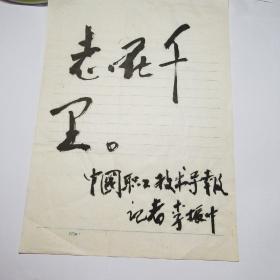 志在千
里。
中国职工技术导报
记者 李振叶